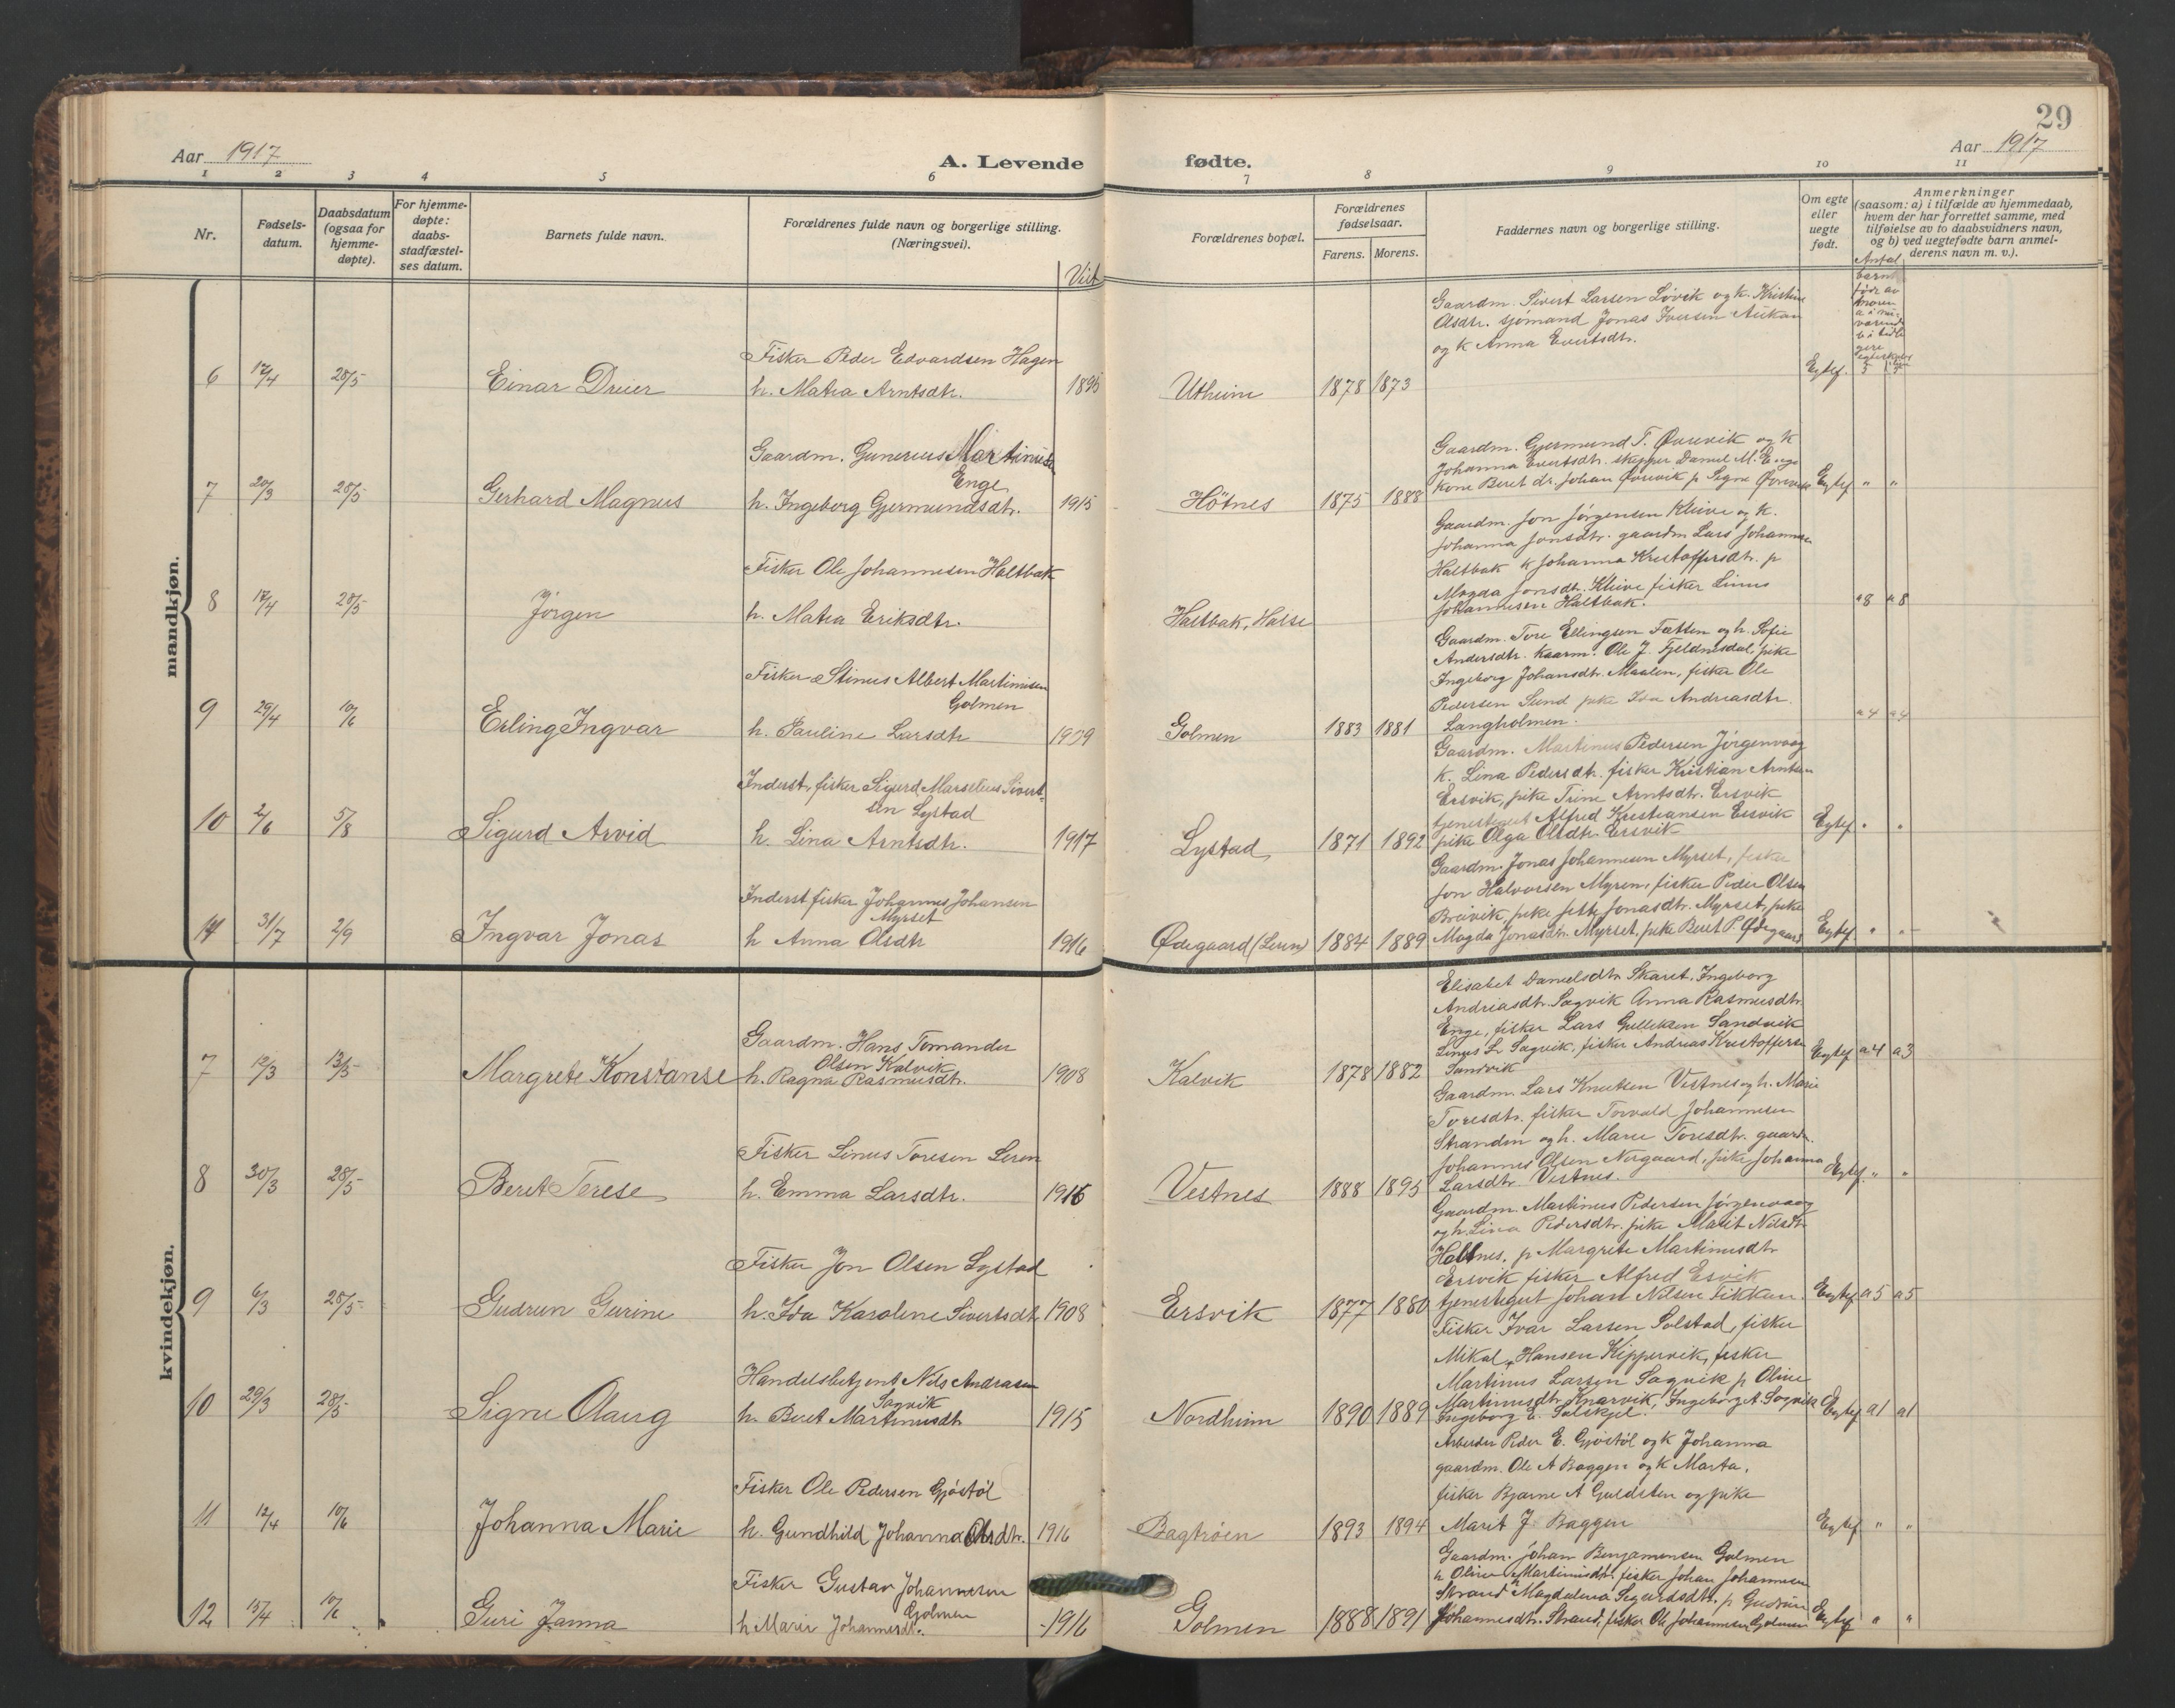 29
Aar 1917
A. Levende fødte.
Aar 1917
1 2 3 4 5 6 7 8 9 10 11
Nr.
Fødsels-
datum.
Daabsdatum
(ogsaa for
hjemme-
døpte).
For hjemme-
døpte:
daabs-
stadfæstel-
ses datum.
Barnets fulde navn.
Forældrenes fulde navn og borgerlige stilling.
(Næringsvei).
Viet
Forældrenes bopæl.
Forældrenes
fødselsaar.
Farens. Morens.
Faddernes navn og borgerlige stilling.
Om egte
eller
uegte
født.
Anmerkninger
(saasom: a) i tilfælde av hjemmedaab,
hvem der har forrettet samme, med
tilføielse av to daabsvidners navn,
og b) ved uegtefødte barn anmel-
derens navn m. v.).
Antal
barn
født av
moren
a i nu-
værende
b i tidli
gere
egteskaber
mandkjøn.
Gaardm. Sivert Larsen Løvik og k. Kristine
Olsdtr. sjömand Jonas Iversen Aukan
og k Anna Evertsdtr.
Fisker Peder Edvardsen Hagen
6 17/4 28/5 Einar Dreier h. Matea Arntsdtr. 1895 Utheim 1878 1873 Egtef. 5
Gaardm. Gunerius Martinusen
Enge
Gaardm. Gjermund T. Øvrevik og k
Johanna Evertsdtr. skipper Daniel M. Enge
kone Beret dr. Johan Øvrevik p Signe Øvrevik
7 20/3 28/5 Gerhard Magnus h. Ingeborg Gjermundsdtr. 1915 Hötnes 1875 1888 Egtef " "
Gaardm. Jon Jörgensen Kleive og k.
Johanna Jonsdtr. gaardm Lars Johannesen
Haltbak k Johanna Kristoffersdtr. p
Magda Jonsdtr. Kleive fisker Linus
Johannesen Haltbak.
Fisker Ole Johannesen Haltbak
8 17/4 28/5 Jörgen h. Matea Eriksdtr. Haltbak, Halse a8 a8
Gaardm. Tore Ellingsen Fætten og h. Sofie
Andersdtr. kaarm. Ole J. Fjeldnesdal, pike
Ingeborg Johansdtr. Maalen, fisker Ole
Pedersen Sund pike Ida Andreasdtr
Langholmen.
Fisker Stinus Albert Martinusen
Golmen
9 29/4 10/6 Erling Ingvar h. Pauline Larsdtr 1909 Golmen 1883 1881 a4 a4
Gaardm. Martinus Pedersen Jörgenvaag
k. Lina Pedersdtr. fisker Kristian Arntsen
Ersvik, pike Trine Arntsdtr. Ersvik
tjenestegut Alfred Kristiansen Ersvik
pike Olga Olsdtr. Ersvik
Inderst, fisker Sigurd Marselius Sivert-
sen Lystad
10 2/6 5/8 Sigurd Arvid h. Lina Arntsdtr. 1917 Lystad 1871 1892 Egtef " "
Gaardm. Jonas Johannesen Myrset, fisker
Jon Halvorsen Myren, fisker Peder Olsen
Breivik, pike Jette Jonasdtr. Myrset, pike
Magda Jonasdtr. Myrset, pike Beret P. Ødegaard
Inderst fisker Johannes Johansen
Myrset
11 31/7 2/9 Ingvar Jonas h Anna Olsdtr 1916 Ødegaard (Leren) 1884 1889 Egtef. " "
kvindekjøn.
Elisabet Danielsdtr Skaret. Ingeborg
Andreasdtr. Sagvik Anna Rasmusdtr.
Enge, fisker Lars Gulleksen Sandvik
Linus L. Sagvik, fisker Andreas Kristoffersen
Sandvik
Gaardm. Hans Tomander
Olsen Kalvik
7 12/3 13/5 Margrete Konstanse h. Ragna Rasmusdtr. 1908 Kalvik 1878 1882 Egtef a4 a3
Gaardm. Lars Knutsen Vestnes og h. Marie
Toresdtr. fisker Torvald Johannesen
Strandm og h. Marie Toresdtr. gaardm.
Johannes Olsen Norgaard, pike Johanna
Larsdtr. Vestnes.
Fisker Linus Toresen Leren
8 30/3 28/5 Beret Terese h. Emma Larsdtr. 1916 Vestnes 1888 1895 Egtef. " "
Gaardm. Martinus Pedersen Jørgenvaag
og h Lina Pedersdtr. pike Marit Nilsdtr
Hallnes. p Margrete Martinusdtr
Ersvik fisker Alfred Esvik
tjenestegut Johan Nilsen Fikkan.
Fisker Jon Olsen Lystad
9 6/3 28/5 Gudrun Gurine h. Ida Karoline Sivertsdtr 1908 Ersvik 1877 1880 Egtef a5 a5
Fisker Ivar Larsen Solstad, fisker
Mikal Hansen Kippervik, fisker
Martinus Larsen Sagvik p Oline
Martinusdtr. Knarvik, Ingeborg A. Sagvik
Ingeborg L. Solskjel.
Handelsbetjent Nils Andrasen
Sagvik
10 29/3 28/5 Signe Olaug h. Beret Martinusdtr 1915 Nordheim 1890 1889 Egtef a1 a1
Arbeider Peder E. Gjöstöl og k Johanna
gaardm. Ole A Baggen og k Marta.
fisker Bjarne A Guldsten og pike
Marit J. Baggen
Fisker Ole Pedersen Gjöstöl
11 12/4 10/6 Johanna Marie h. Gundhild Johanna Olsdtr. 1916 Bagtröen 1893 1894 Egtef " "
Gaardm. Johan Benjamensen Golmen
h Oline Martinusdtr. fisker Johan Johannesen
Strand Magdalena Sigurdsdtr. p Gudrun
Johannesdtr. Strand, fisker Ole Johannesen Golmen
Fisker Gustav Johannesen
Golmen
12 15/4 10/6 Guri Janna h Marie Johannesdtr. 1916 Golmen 1888 1891 Egtef " "